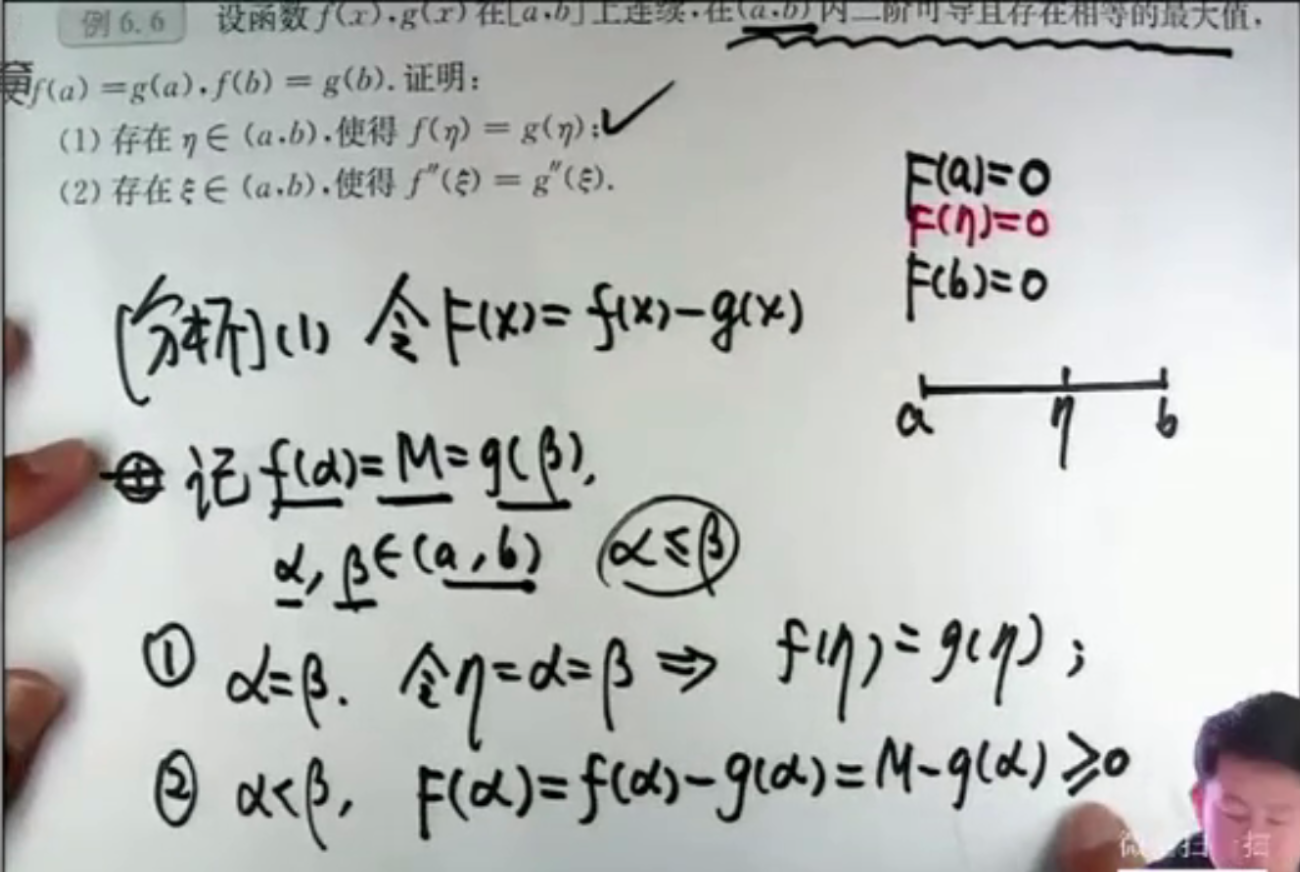 例 6.6 设函数 f(x),g(x) 在[a,b]上连续,在(a,b)内二阶可导且存在相等的最大值,
f(a) =g(a),f(b) = g(b).证明:
(1) 存在 η∈ (a,b),使得 f(η) = g(η);✓
(2) 存在 ξ∈ (a,b),使得 f″(ξ) = g″(ξ).
F(a)=0
F(η)=0
F(b)=0
[分析](1) 令 F(x)= f(x)-g(x)
a η b
记 f(α)=M=g(β),
α, β∈(a,b) α≤β
① α=β. 令η=α=β ⇒ f(η)=g(η);
② α<β, F(α)=f(α)-g(α)=M-g(α)≥0
扫一扫